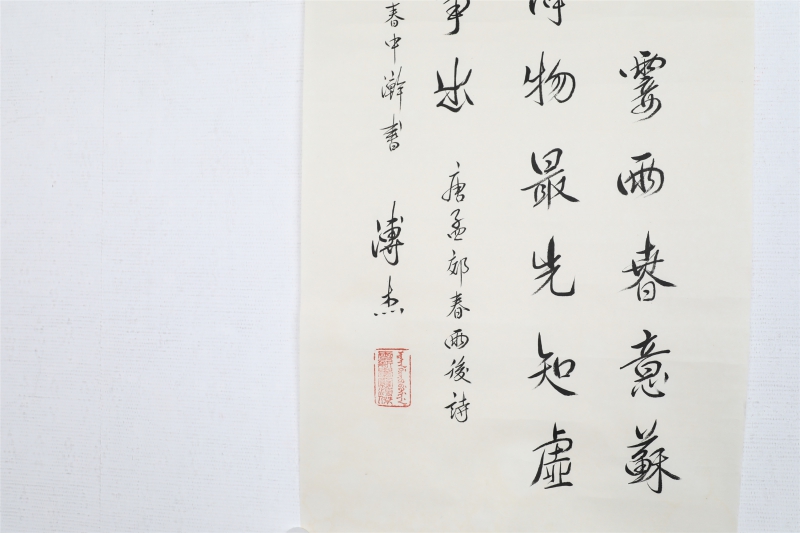 霎雨春意蘇
物最先知虛
出 唐孟郊春雨後詩
春中澣書 溥杰